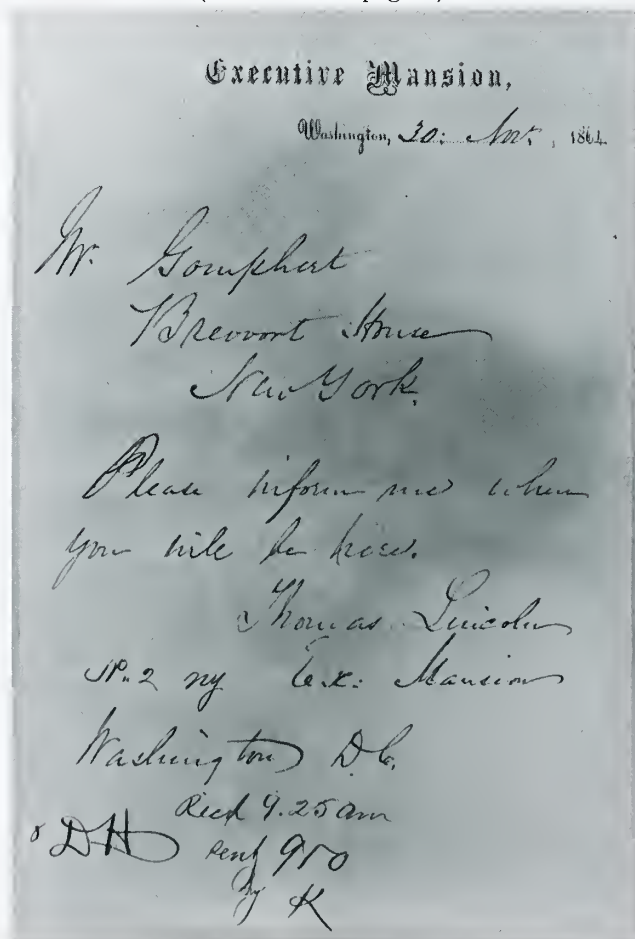 Executive Mansion,
Washington, 30. Nov., 1864
Mr. Gumphert
Brevoort House
New York.
Please inform me when
you will be here.
Thomas Lincoln
No. 2 ny Ex: Mansion
Washington D.C.
Recd 9.25 am
DH sent 950
by K